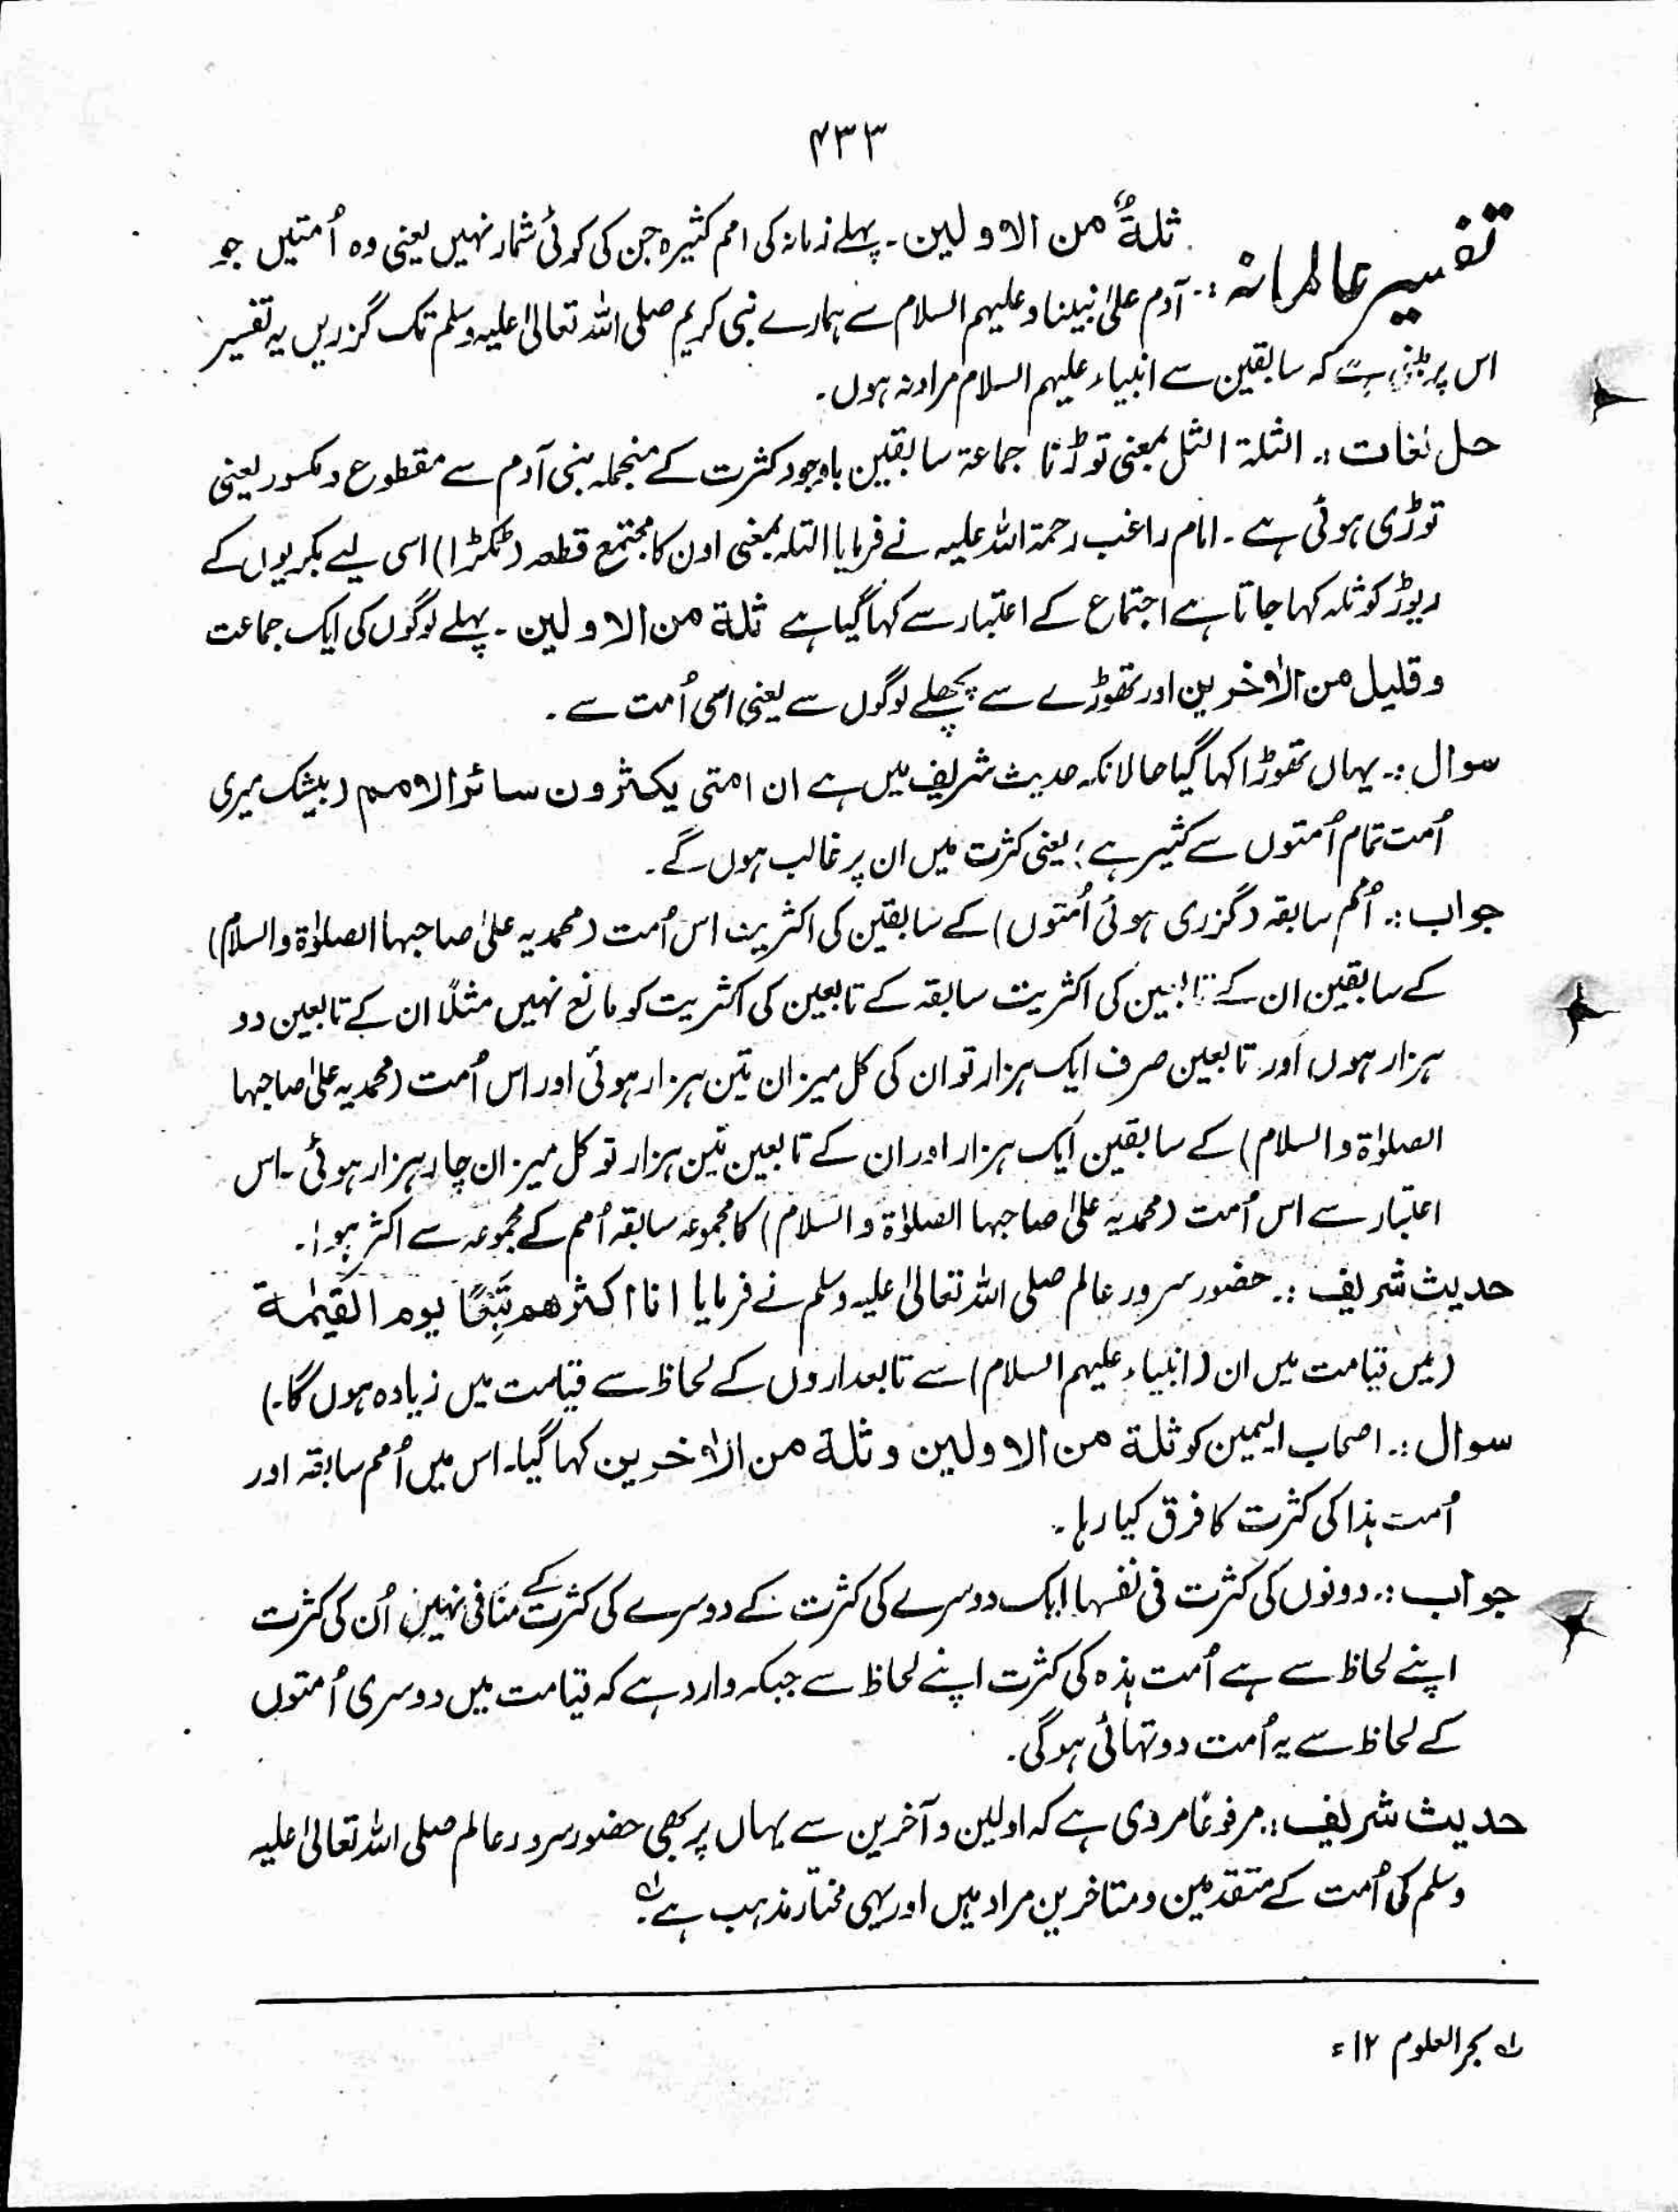 ۴۳۳
تفسیر عالمانہ :۔ ثلۃٌ من الاولین۔ پہلے زمانہ کی امم کثیرہ جن کی کوئی شمار نہیں یعنی وہ اُمتیں جو
آدم علیٰ نبینا وعلیہم السلام سے ہمارے نبی کریم صلی اللہ تعالیٰ علیہ وسلم تک گزریں یہ تفسیر
اس پر مبنی ہے کہ سابقین سے انبیاء علیہم السلام مراد نہ ہوں۔
حل لغات :۔ الثلۃ الثل بمعنی توڑنا جماعۃ سابقین باوجود کثرت کے منجملہ بنی آدم سے مقطوع و مکسور یعنی
توڑی ہوئی ہے۔ امام راغب رحمۃ اللہ علیہ نے فرمایا الثلہ بمعنی اون کا مجتمع قطعہ (ٹکڑا) اسی لیے بکریوں کے
ریوڑ کو ثلہ کہا جاتا ہے اجتماع کے اعتبار سے کہا گیا ہے ثلۃ من الاولین۔ پہلے لوگوں کی ایک جماعت
وقلیل من الاٰخرین اور تھوڑے سے پچھلے لوگوں سے یعنی اسی اُمت سے۔
سوال :۔ یہاں تھوڑا کہا گیا حالانکہ حدیث شریف میں ہے ان امتی یکثرون سائر الامم (بیشک میری
اُمت تمام اُمتوں سے کثیر ہے) یعنی کثرت میں ان پر غالب ہوں گے۔
جواب :۔ اُمم سابقہ (گزری ہوئی اُمتوں) کے سابقین کی اکثریت اس اُمت (محمدیہ علیٰ صاحبہا الصلوٰۃ والسلام)
کے سابقین ان کے تابعین کی اکثریت سابقہ کے تابعین کی اکثریت کو مانع نہیں مثلاً ان کے تابعین دو
ہزار ہوں اور تابعین صرف ایک ہزار تو ان کی کل میزان تین ہزار ہوئی اور اس اُمت (محمدیہ علیٰ صاحبہا
الصلوٰۃ والسلام) کے سابقین ایک ہزار اور ان کے تابعین تین ہزار تو کل میزان چار ہزار ہوئی۔ اس
اعتبار سے اس اُمت (محمدیہ علیٰ صاحبہا الصلوٰۃ والسلام) کا مجموعہ سابقہ اُمم کے مجموعہ سے اکثر ہوا۔
حدیث شریف :۔ حضور سرور عالم صلی اللہ تعالیٰ علیہ وسلم نے فرمایا انا اکثرھم تَبَعًا یوم القیٰمۃ
(میں قیامت میں ان (انبیاء علیہم السلام) سے تابعداروں کے لحاظ سے قیامت میں زیادہ ہوں گا۔)
سوال :۔ اصحاب الیمین کو ثلۃ من الاولین وثلۃ من الاٰخرین کہا گیا۔ اس میں اُمم سابقہ اور
اُمت ہذا کی کثرت کا فرق کیا رہا۔
جواب :۔ دونوں کی کثرت فی نفسہا ایک دوسرے کی کثرت کے دوسرے کی کثرت کے منافی نہیں اُن کی کثرت
اپنے لحاظ سے ہے اُمت ہذہ کی کثرت اپنے لحاظ سے جبکہ وارد ہے کہ قیامت میں دوسری اُمتوں
کے لحاظ سے یہ اُمت دو تہائی ہو گی۔
حدیث شریف :۔ مرفوعًا مروی ہے کہ اولین وآخرین سے یہاں پر بھی حضور سرور عالم صلی اللہ تعالیٰ علیہ
وسلم کی اُمت کے متقدمین ومتاخرین مراد ہیں اور یہی مختار مذہب ہے۔؎۱
؎۱ بحر العلوم ۱۲ء